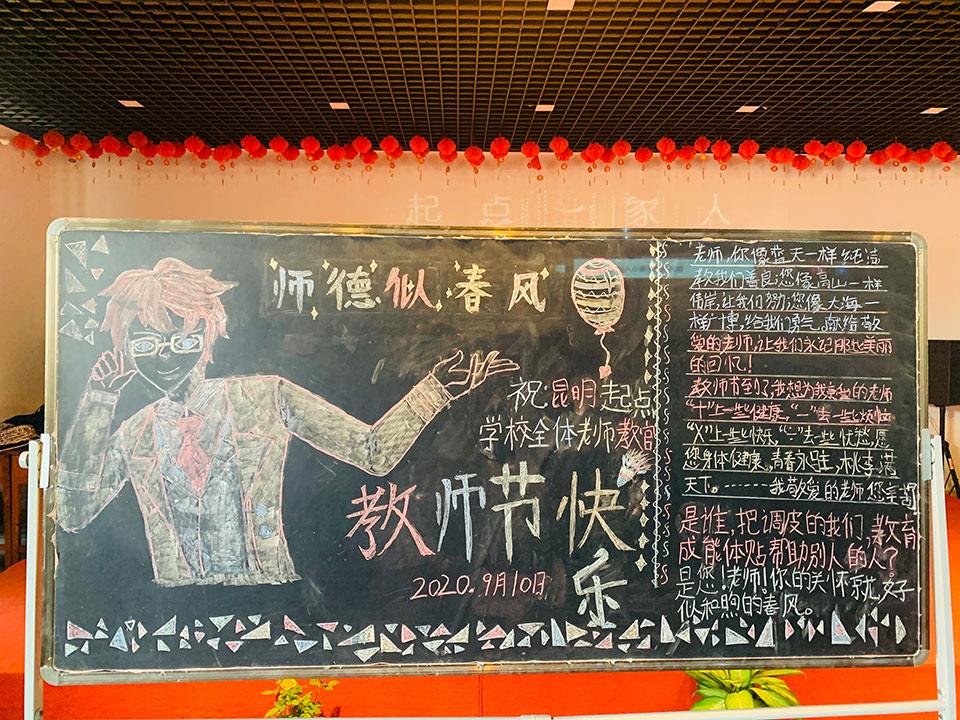 起点一家人
师德似春风
祝:昆明起点
学校全体老师教官
教师节快
乐
2020.9月10日
老师,你像蓝天一样纯洁
教我们善良;您像高山一样
伟岸,让我们努力;您像大海一
样广博,给我们勇气,献给敬
爱的老师,让我们永记那些美丽
的回忆!
教师节到了,我想为我亲爱的老师
“十”上一些健康,“一”去一些烦恼
“X”上一些快乐,“÷”去一些忧愁,愿
您身体健康,青春永驻,桃李满
天下。------我敬爱的老师您辛苦
是谁,把调皮的我们,教育
成能体贴帮助别人的人?
是您!老师!你的关怀就好
似和煦的春风。